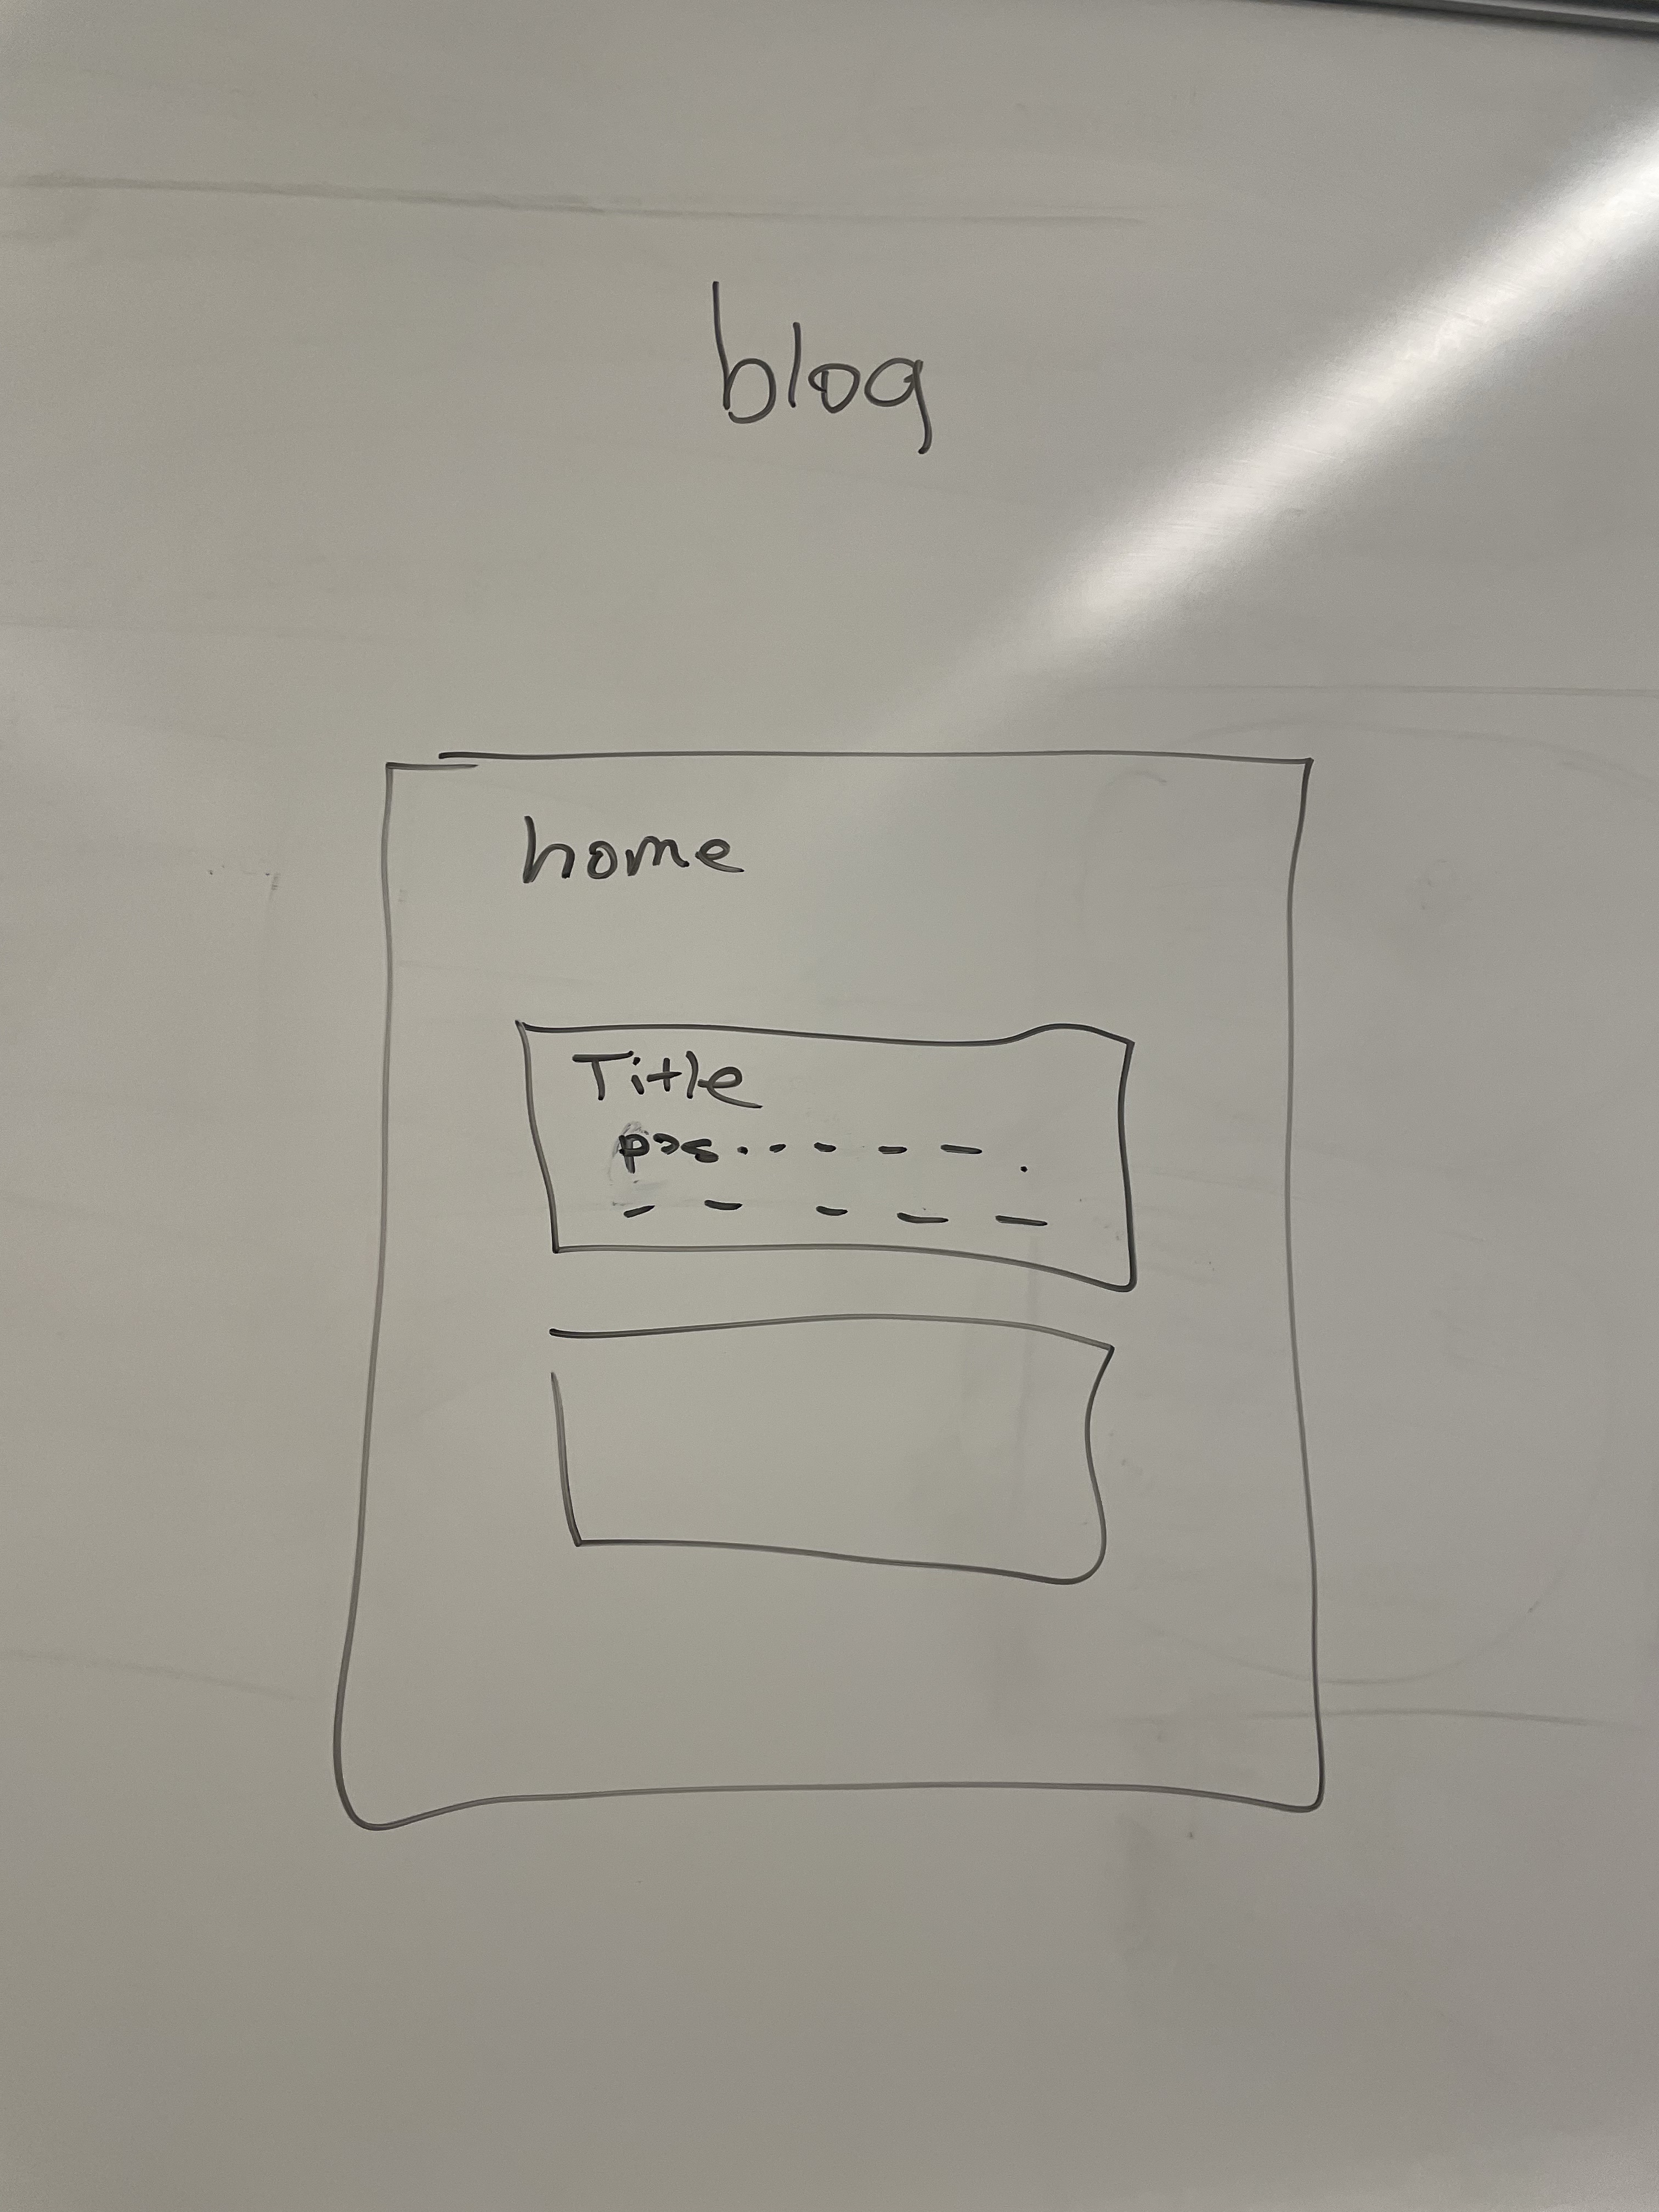 blog
home
Title